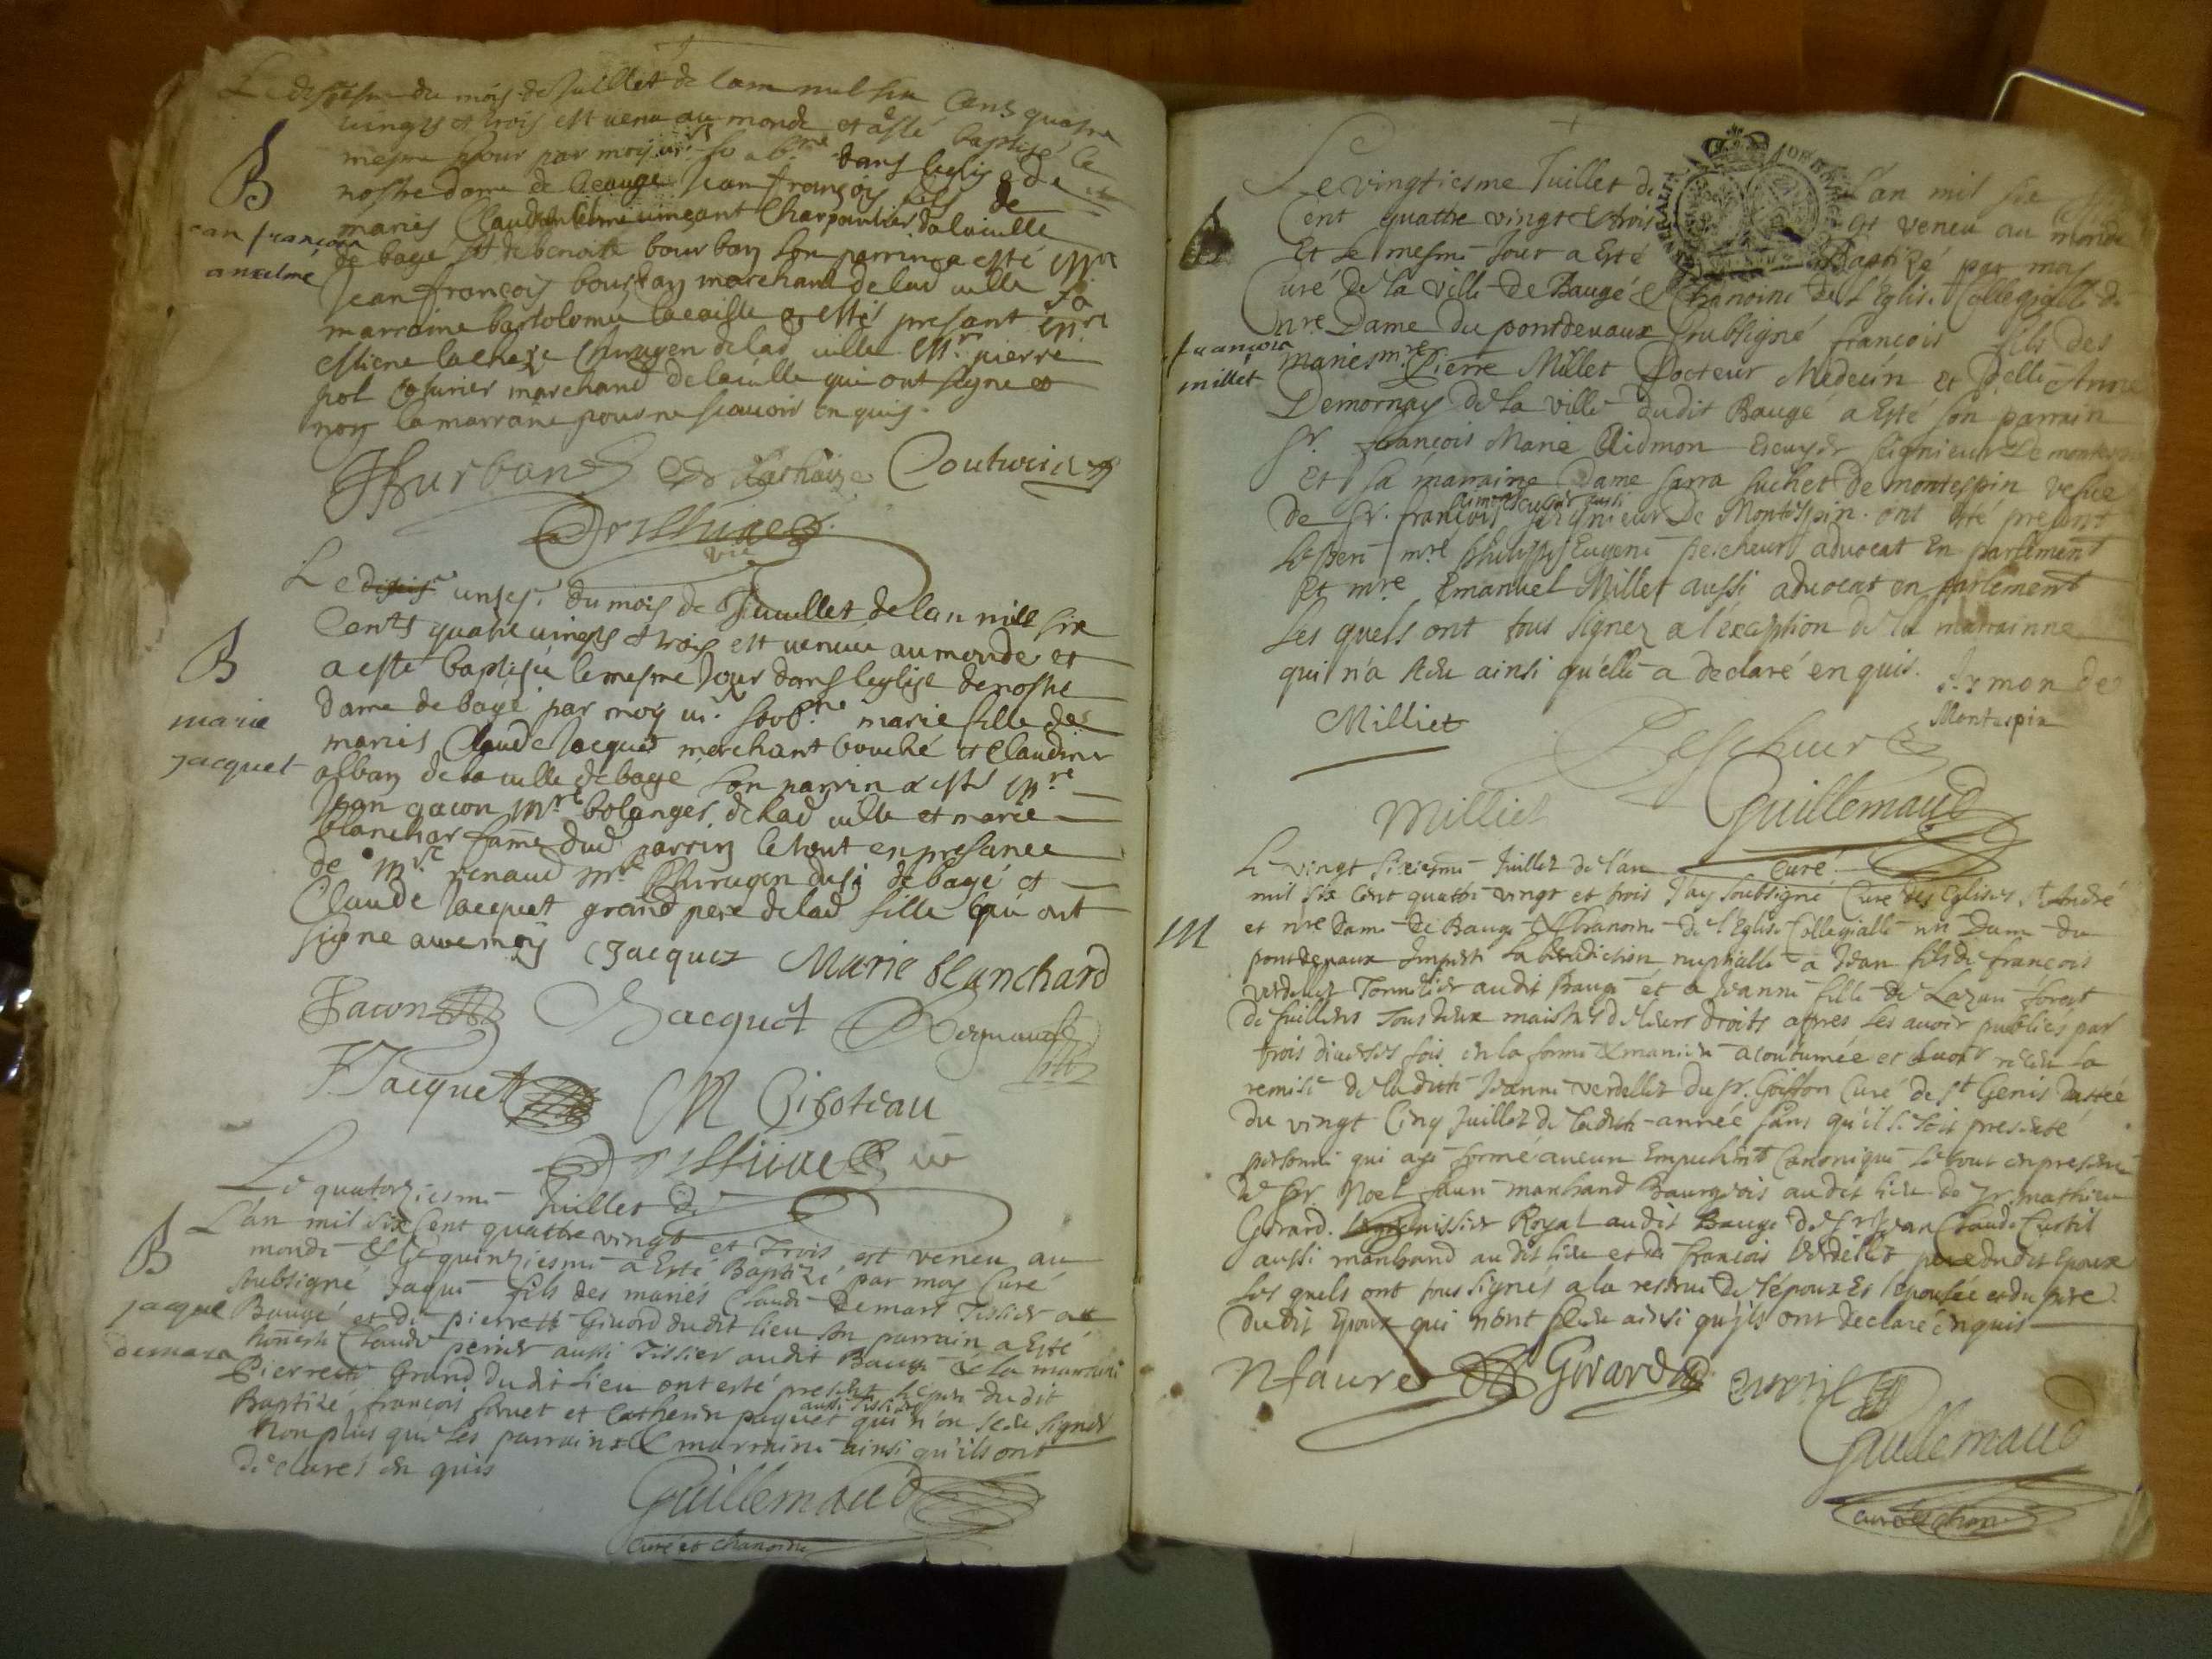 Le du mois de Juillet de lan mil six Cens quatre
vingts et trois est venu au monde et a esté baptisé le
mesme jour par moy dans leglise de
nostre dame de Jean françois fils de
mariés Claude charpantier de la ville
de bagé et de benoite bourban son parrin a esté Mre
Jean françois bourban marchand de lad ville sa
marraine bartolomie a estés presant Mre
estiene lacheze chirurgen de lad ville Mre pierre
marchand de la ville qui ont signe et
non la marrane pour ne scavoir enquis.
B
Jean françois
anselme
JfBurban Lachaize Couturier
vic
Le unze. du mois de Juuillet de lan mill six
Cents quatre vingts et trois est venue au monde et
a esté baptisée le mesme jour dans leglise de nostre
dame de bagé par moy vi. soub.ne marie fille des
mariés Claude Jacquet merchant bouché et Claudine
alban de la ville de bagé son parrin a esté Mre
Jean gacon Mre bolanger de lad ville et marie
blanchar fame dud parrin le tout en presance
de Mre renaud Mre Chirurgen dusi de bagé et
Claude Jacquet grand pere de lad fille qui ont
signe avec moy
B
marie
jacquet
Jacquet Marie blanchard
Gacon Jacquet Regnaud
Jacquet M Giboteau
vic
Le quatorziesme Juillet de
L'an mil six Cent quattre vingt et Trois est veneu au
monde & le quinziesme a Esté Baptizé par moy Curé
soubsigné Jaque fils des mariés Claude Demars Tissier au
Baugé et de Pierrette Givord dudit lieu son parrain a Esté
honneste Claude perier aussi Tissier audit Baugé & la marraine
Pierrette Grand dudit lieu ont esté present le pere dudit
Baptizé françois et Catherin paquet aussi Tissiers qui n'on sceu signer
Non plus que les parrain & marraine ainsi qu'ils ont
declarés en quis
B
jacque
demara
Guillemaud
curé et chanoine
Le vingtiesme Juillet de L'an mil six
Cent quattre vingt & trois est veneu au monde
Et le mesme Jour a Esté Baptizé par moy
Curé de la ville de Baugé & Chanoine de l'Eglise Collegialle de
nre Dame du pontdevaux soubsigné françois fils des
mariés mre Pierre Millet Docteur Medecin et Delle Anne
Demornay de la ville dudit Baugé a Esté son parrain
Sr. françois Marie Aidmon Escuyer seignieur de montespin
Et sa marraine Dame sarra suchet de montespin vefve
de Sr. françois aimon escuier aussi seignieur de Montespin. ont esté present
Le pere mre philippes Eugene pescheur advocat en parlement
Et mre Emanuel Millet aussi advocat en parlement
Les quels ont tous signez a l'exception de la marrainne
qui n'a sceu ainsi qu'elle a declaré en quis.
B
françois
millet
Aymon de
Montespin
Milliet Pescheur
Milliet Guillemaud
Curé
Le vingt sixiesme Juillet de l'an
mil six Cent quattre vingt et trois J'ay soubsigné Curé des Eglises St André
et nre Dame de Baugé & Chanoine de l'Eglise Collegialle nre Dame du
pontdevaux Imparti la benediction nuptialle a Jean fils de françois
verdellet Tonnelier audit Baugé et a Jeanne fille de Lazare forest
de fuillens tous deux maistres de leurs droits apres les avoir publiés par
trois diverses fois en la forme & maniere acoutumée et avoir receu la
remise de ladite Jeanne verdellet du Sr. Goiffon Curé de St Genis
du vingt Cinq Juillet de ladite année sans qu'il se soit presenté
personne qui aye formé aucun Empechemt Canonique le tout en presence
de Sr. Noel faure marchand Bourgeois audit lieu de Sr. mathieu
Girard. Royal audit Baugé de Sr Jean Claude Curtil
aussi marchand audit lieu et de françois Verdellet pere dudit Epoux
Les quels ont tous signés a la reserve de l'époux Et l'épousée et du pere
dudit Epoux qui n'ont sceu ainsi qu'ils ont declaré enquis
M
Nfaure Girard Curtil
Guillemaud
curé et chanoine